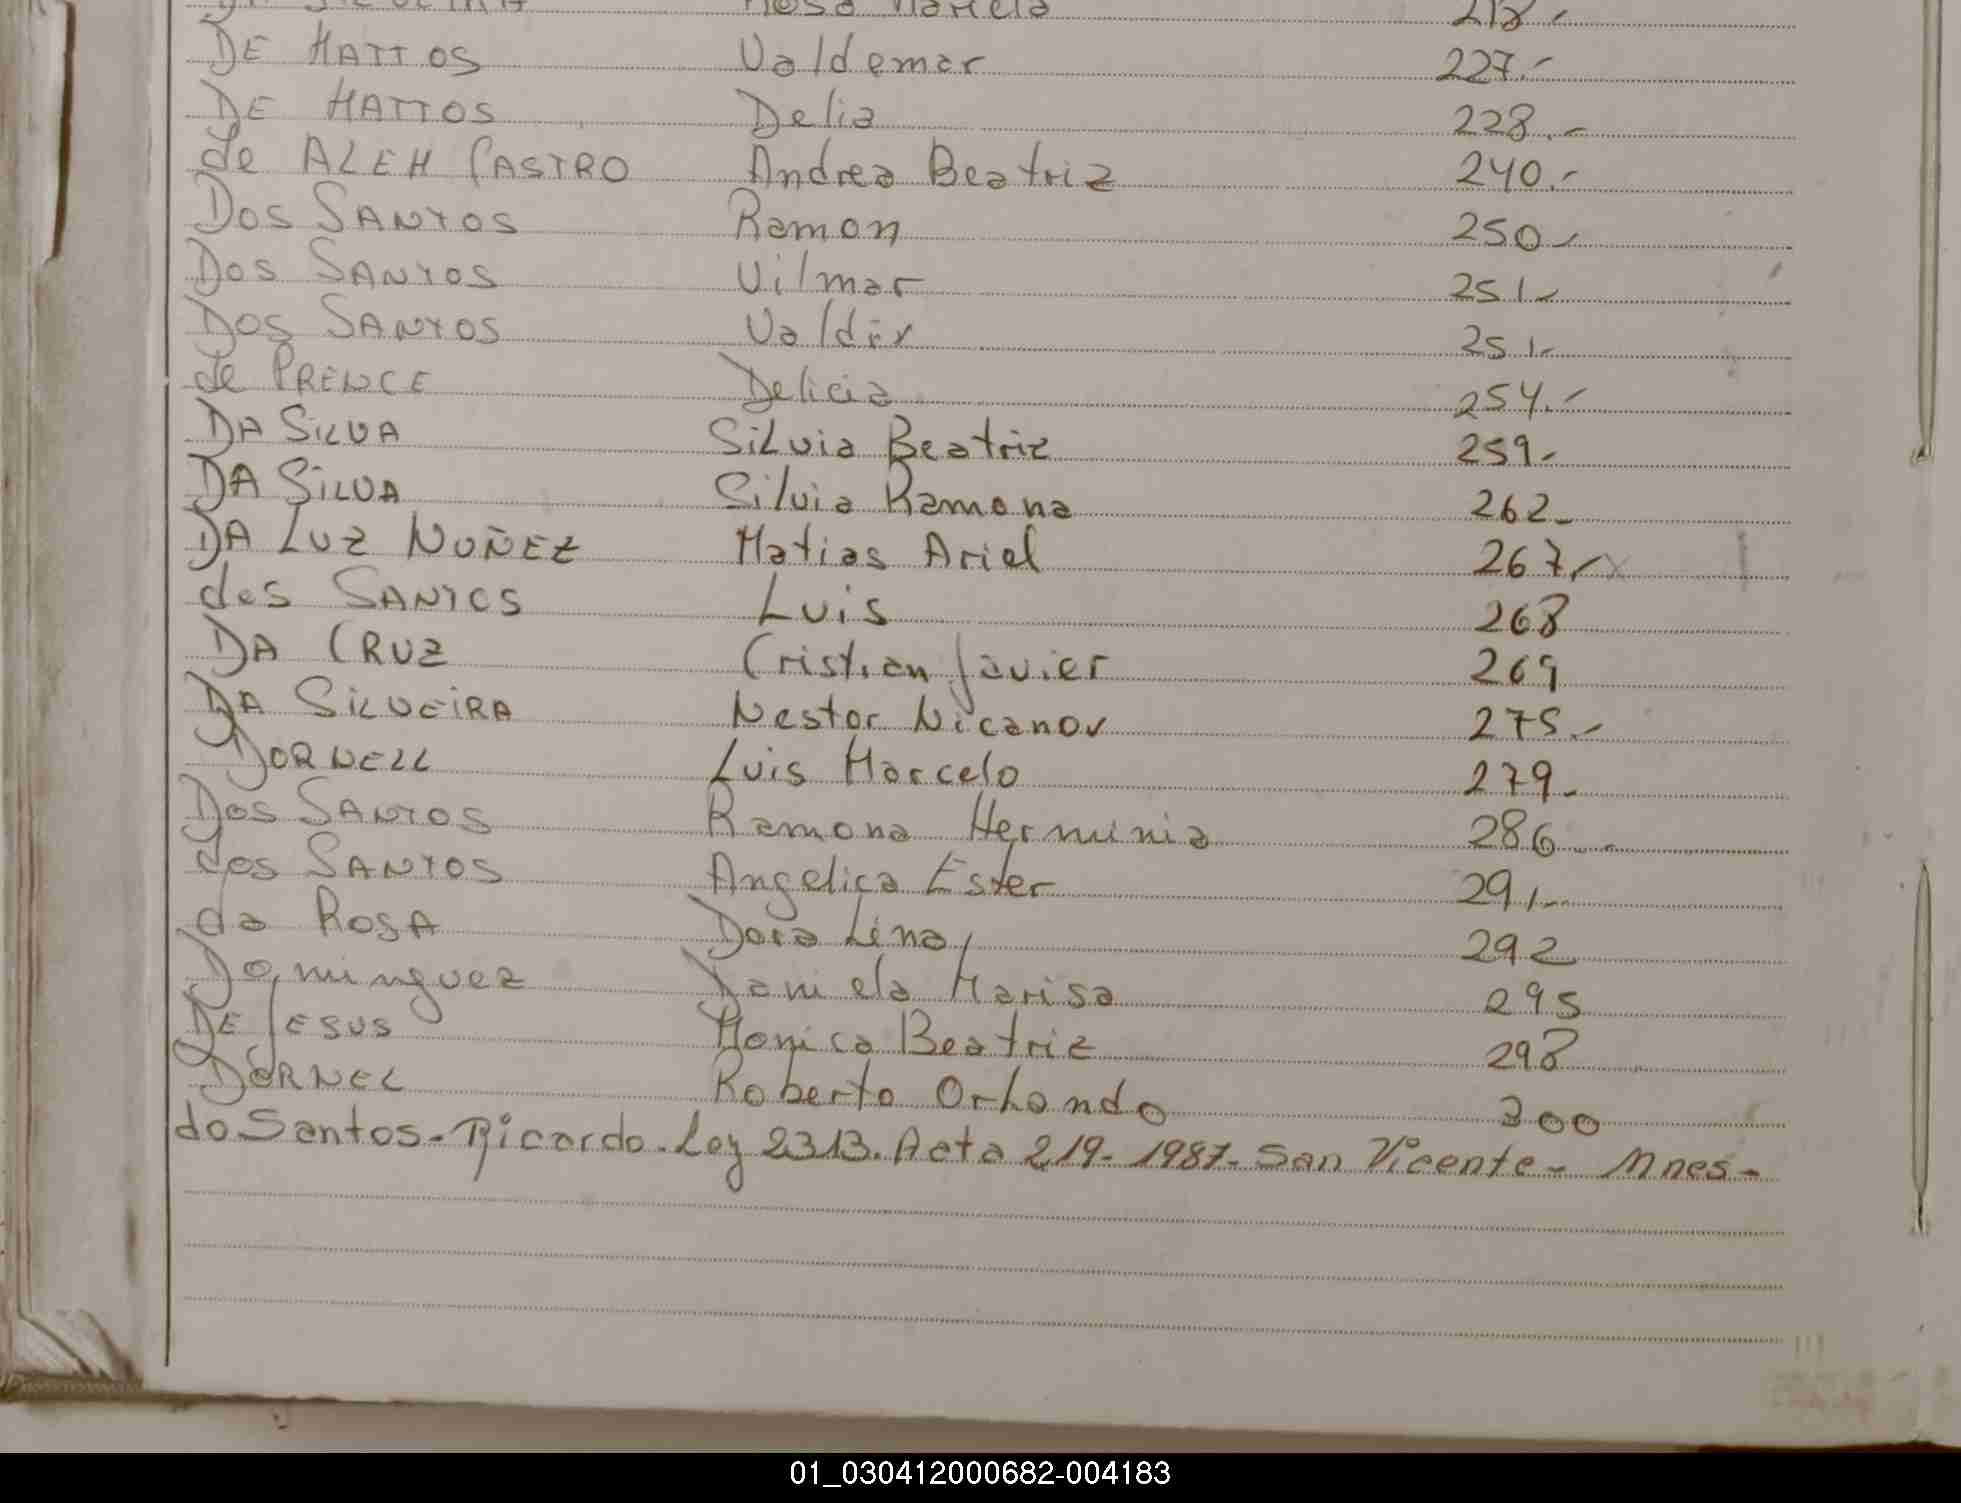 DE MATTOS Valdemar 227.-
DE MATTOS Delia 228.-
de ALEM CASTRO Andrea Beatriz 240.-
DOS SANTOS Ramon 250-
DOS SANTOS Vilmar 251-
DOS SANTOS Valdir 251-
de PRENCE Delicia 254.-
DA SILVA Silvia Beatriz 259-
DA SILVA Silvia Ramona 262-
DA LUZ NUÑEZ Matias Ariel 267,-
dos SANTOS Luis 268
DA CRUZ Cristian Javier 269
DA SILVEIRA Nestor Nicanor 275.-
DORNELL Luis Marcelo 279-
DOS SANTOS Ramona Herminia 286.-
dos SANTOS Angelica Ester 291.-
da ROSA Dora Lina 292
Dominguez Daniela Marisa 295
DE JESUS Monica Beatriz 298
DORNEL Roberto Orlando 300
do Santos - Ricardo - Ley 2313. Acta 219- 1987- San Vicente - Mnes -
01_030412000682-004183